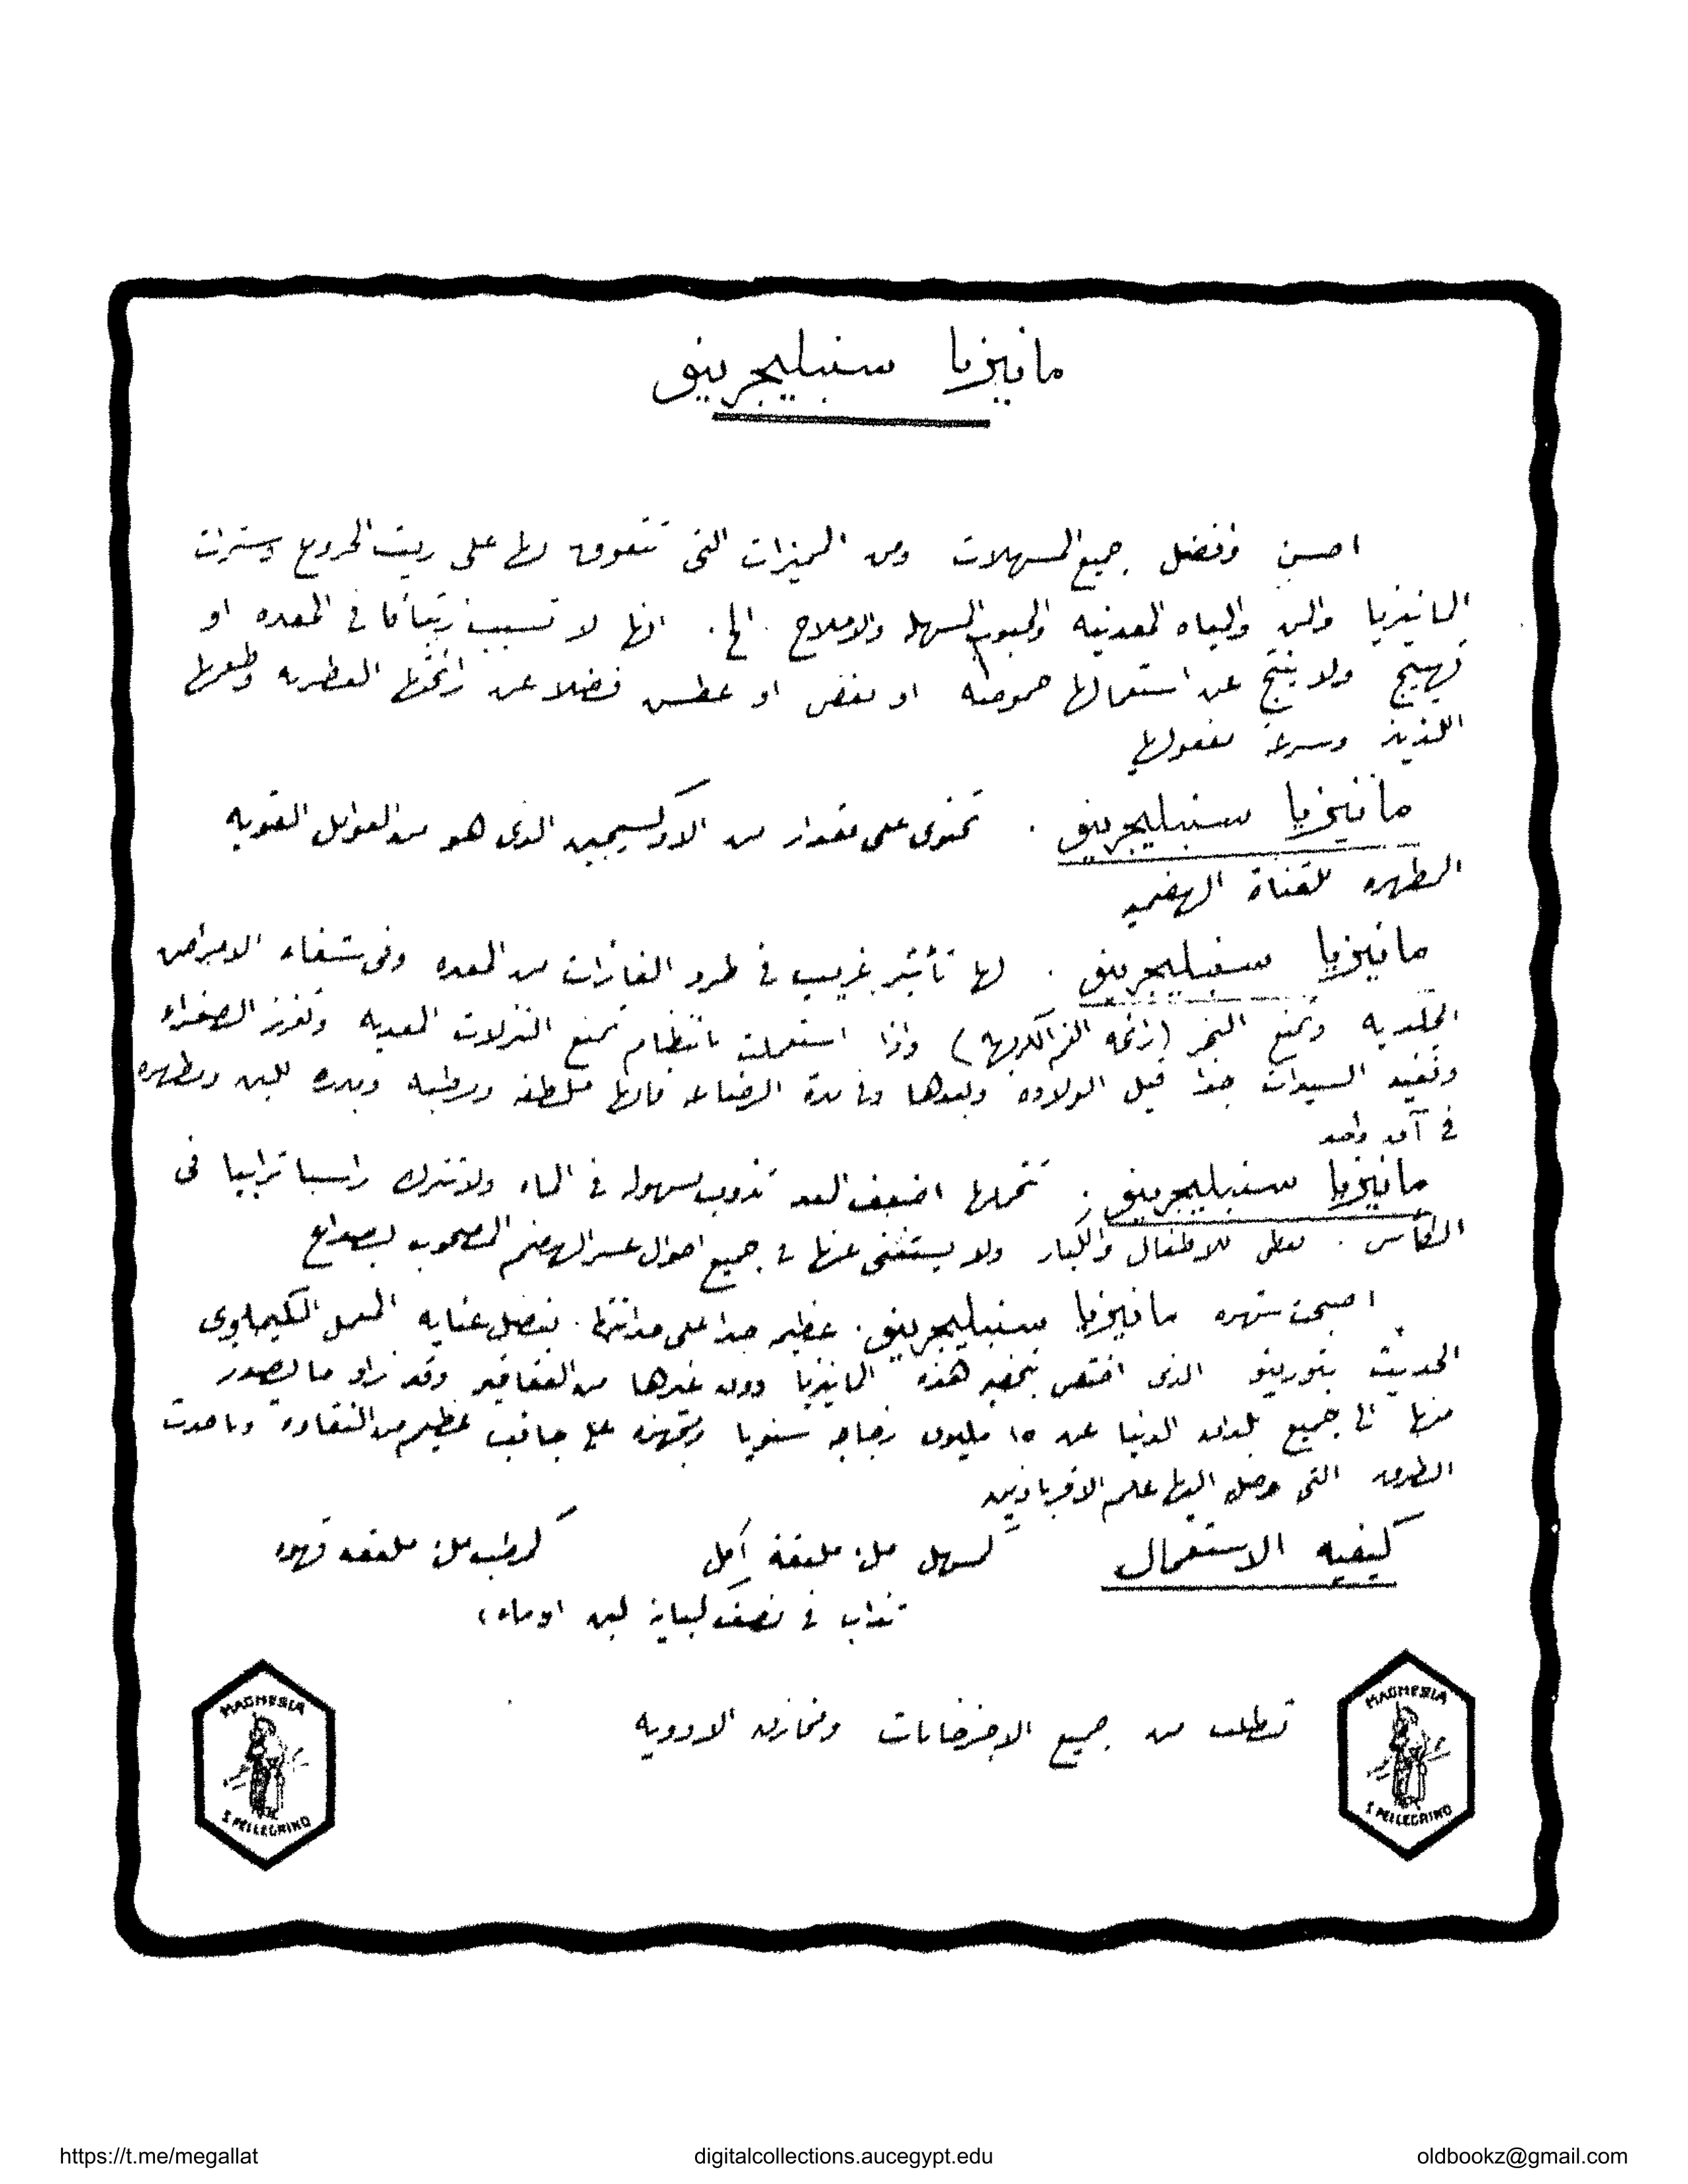 مانيزيا سنبليجرينو
احسن وافضل جميع المسهلات ومن المميزات التى تتفوق بها على زيت الخروع وسترات
المانيزيا والسن والمياه المعدنيه والحبوب المسهله والاملاح الخ. انها لا تسبب ارتباكا في المعده او
تهييج ولا ينتج عن استعمالها حموضه او مغص او عطس فضلا عن رائحتها العطريه وطعمها
اللذيذ وسرعة مفعولها
مانيزيا سنبليجرينو . تحتوى على مقدار من الاوكسيجين الذى هو من العوامل القويه
المطهره للقناة الهضميه
مانيزيا سنبليجرينو . لها تأثير غريب في طرد الغازات من المعده وفى شفاء الامراض
الجلديه وتمنع البخر (رائحة الفم الكريهه) واذا استعملت بانتظام تمنع النزلات المعديه وتفرز الصفراء
وتفيد السيدات جدا قبل الولاده وبعدها وفي مدة الرضاعه فانها ملطفه ومرطبه ومدره للبن ومطهره
في آن واحد
مانيزيا سنبليجرينو : تتحملها اضعف المعد تذوب بسهوله في الماء ولا تترك راسبا ترابيا فى
الكأس . تعطى للاطفال والكبار ولا يستغنى عنها في جميع احوال عسر الهضم المصحوب بصداع
اصبحت شهره مانيزيا سنبليجرينو . عظيمه جدا على حداثتها . بفضل عنايه المعمل الكيماوى
الحديث بتورينو الذى اختص بتحضير هذه المانيزيا دون غيرها من العقاقير وقد زاد ما يصدر
منها الى جميع بلدان الدنيا عن ١٥ مليون زجاجه سنويا مجهزه على جانب عظيم من النقاوه وباحدث
الطرق التى وصل اليها علم الاقرباذين
كيفيه الاستعمال كمسهل ملء ملعقة اكل كمرطب ملء ملعقه قهوه
تذاب في نصف كباية لبن او ماء،
تطلب من جميع الاجزخانات ومخازن الادويه
MAGNESIA
S. PELLEGRINO
MAGNESIA
S. PELLEGRINO
https://t.me/megallat digitalcollections.aucegypt.edu oldbookz@gmail.com